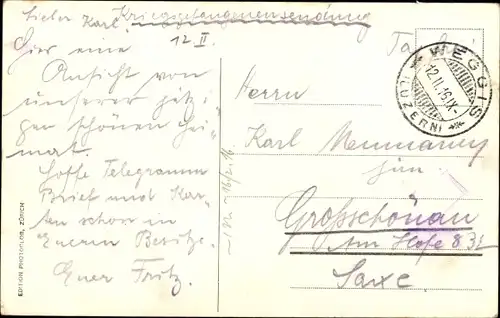 Lieber Karl. Kriegsgefangenensendung
12. II.
Hier eine
Ansicht von
unserer jetzi-
gen schönen Hei-
mat.
Hoffe Telegramm
Brief und Kar-
ten schon in
Euerm Besitze.
Euer Fritz.
EDITION PHOTOGLOB, ZÜRICH
WEGGIS
12.II.16.IX-
(LUZERN)
Herrn
Karl
jun.
Großschönau
Am Hofe 831
Saxe